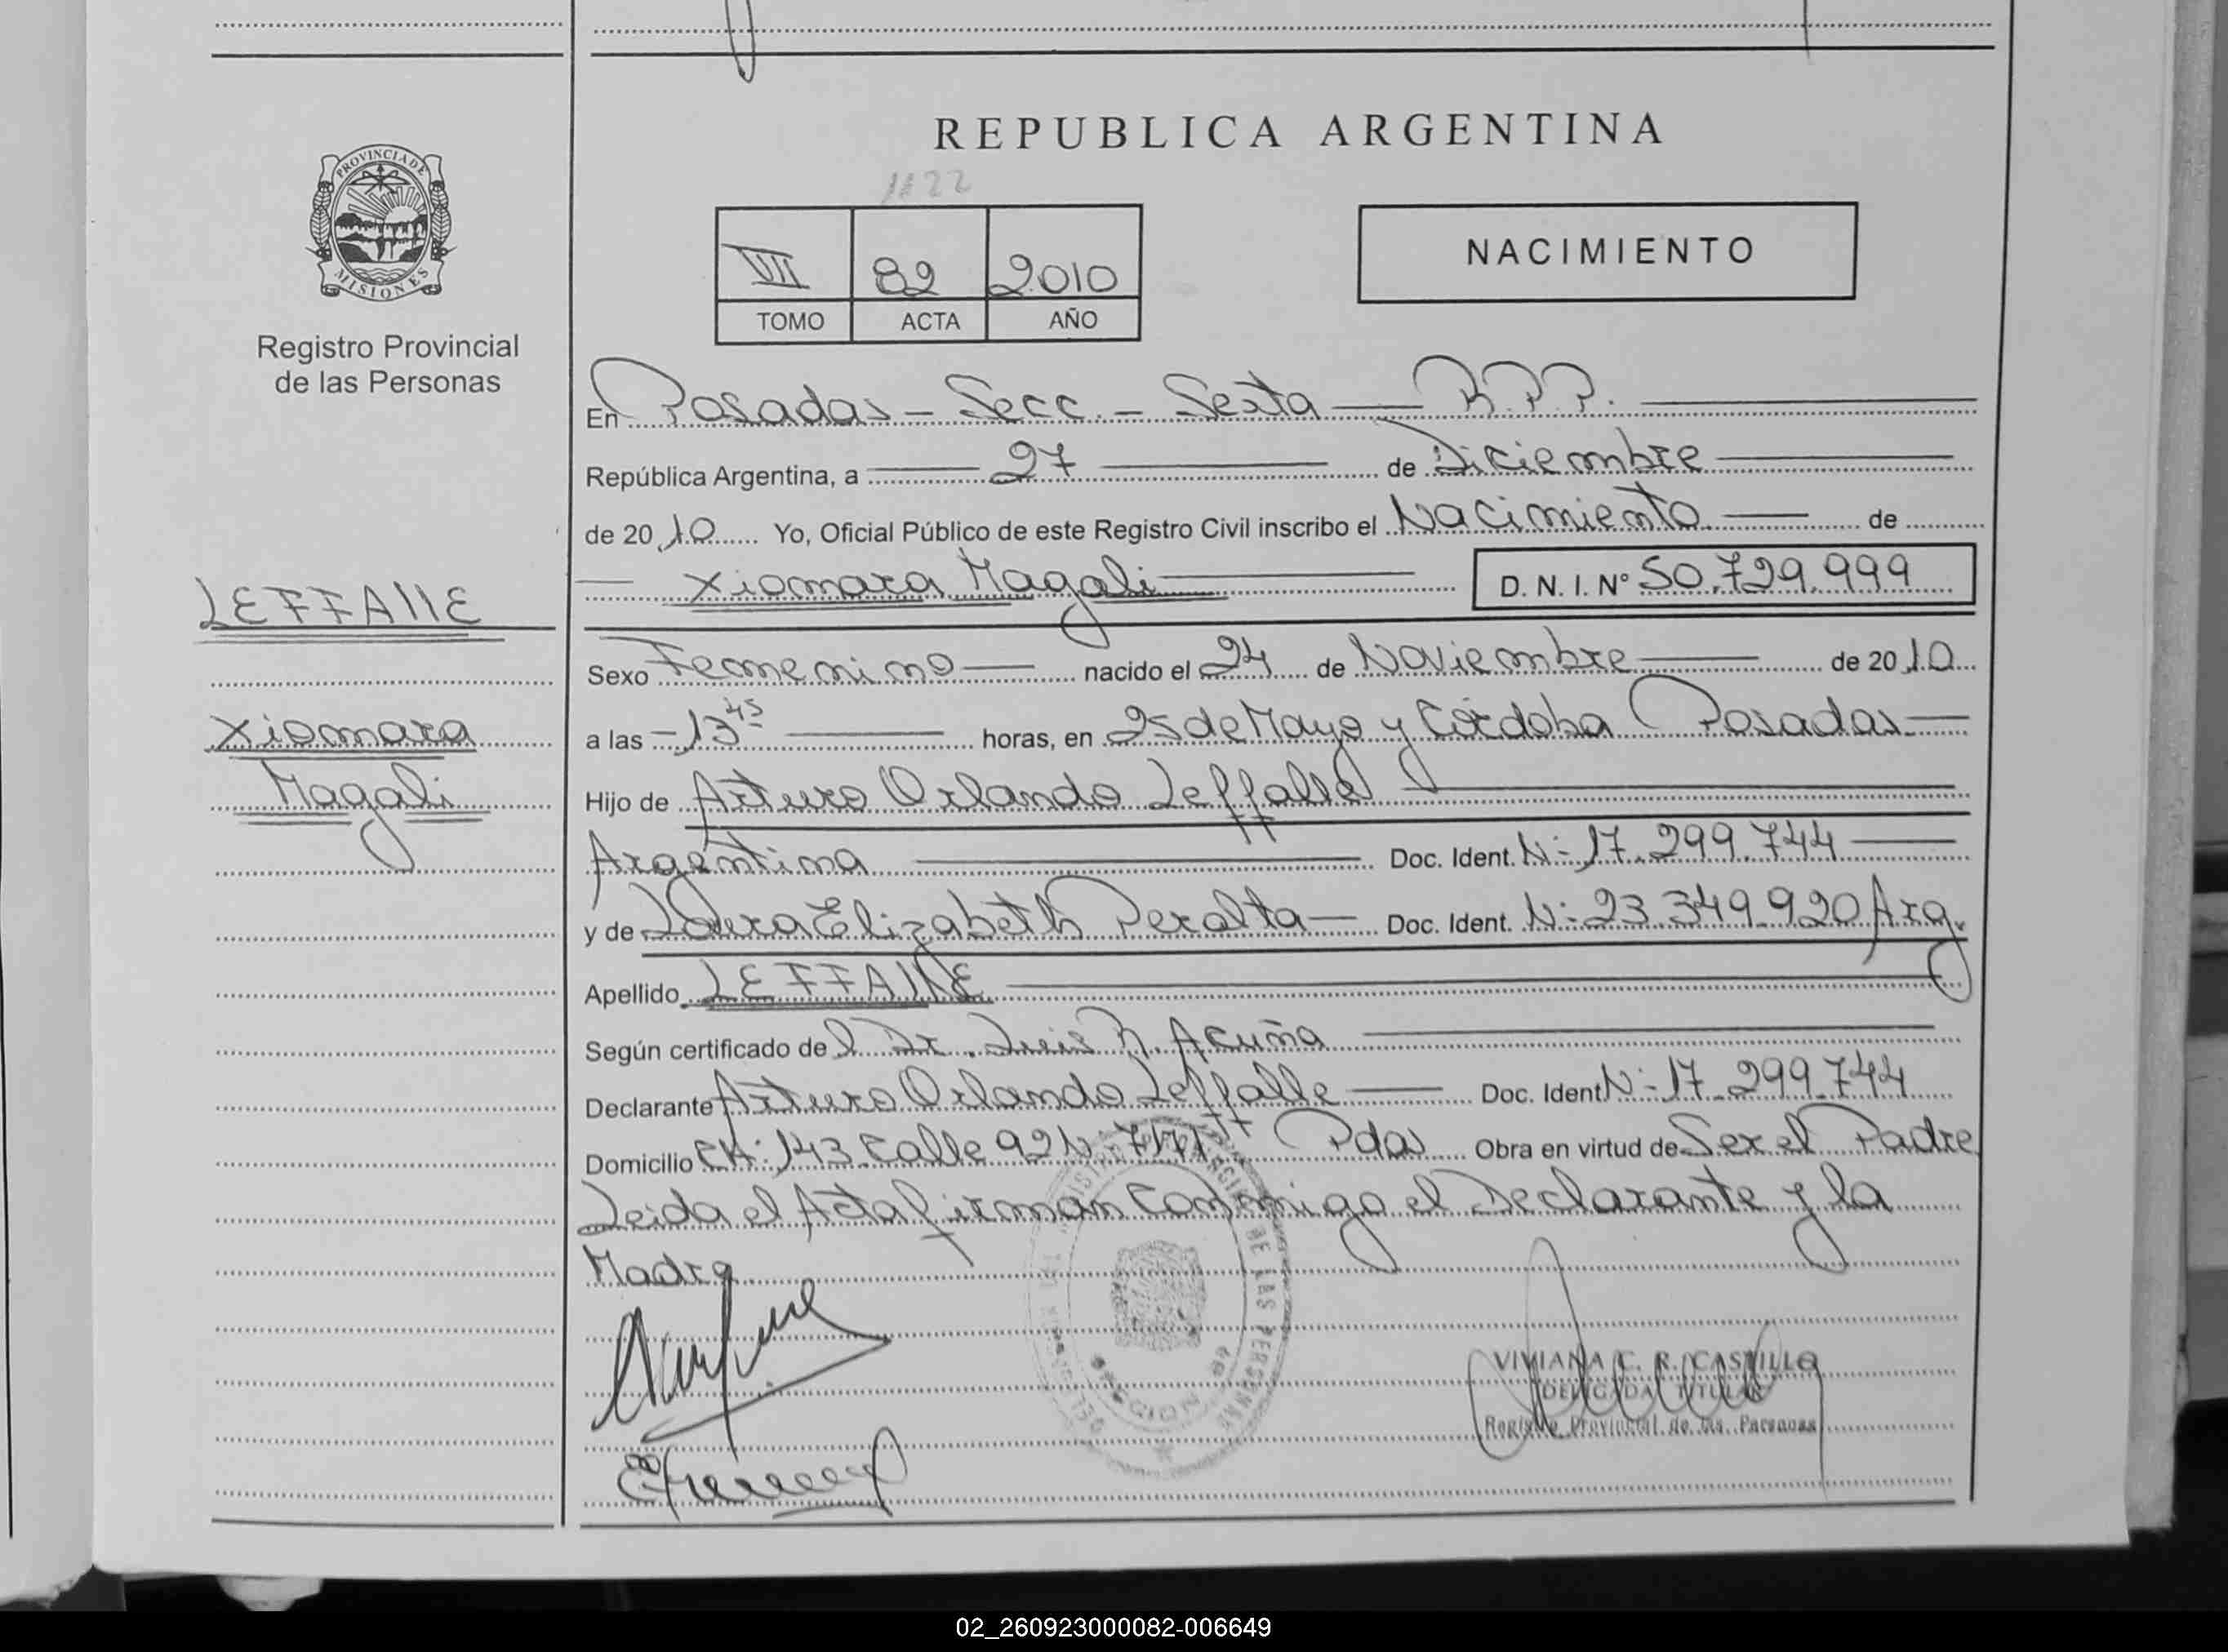 REPUBLICA ARGENTINA
1122
PROVINCIA DE
MISIONES
Registro Provincial
de las Personas
VII 82 2010
TOMO ACTA AÑO
NACIMIENTO
En Posadas - Secc. - Sexta R.P.P.
República Argentina, a 27 de Diciembre
de 2010 Yo, Oficial Público de este Registro Civil inscribo el Nacimiento de
Xiomara Magali D. N. I. Nº 50.729.999
LEFFALLE
Xiomara
Magali
Sexo Femenino nacido el 24 de Noviembre de 2010
a las 13 45 horas, en 25 de Mayo y Córdoba Posadas
Hijo de Arturo Orlando Leffalle
Argentina Doc. Ident. N: 17.299.744
y de Laura Elizabeth Peralta Doc. Ident. N: 23.349.920 Arg.
Apellido LEFFALLE
Según certificado del Dr. Luis R. Acuña
Declarante Arturo Orlando Leffalle Doc. Ident N: 17.299.744
Domicilio CH: 143 Calle 92 N: Pdas Obra en virtud de Ser el Padre
Leida el Acta firman Conmigo el Declarante y la
Madre
VIVIANA C. R. CASTILLO
DELEGADA TITULAR
Registro Provincial de las Personas
02_260923000082-006649